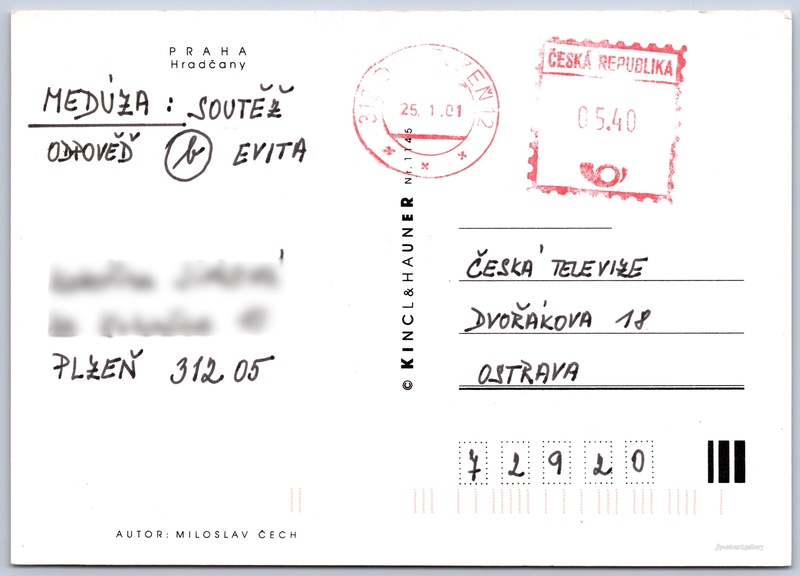 PRAHA
Hradčany
MEDÚZA : SOUTĚŽ
ODPOVĚĎ b EVITA
PLZEŇ 312 05
AUTOR: MILOSLAV ČECH
© KINCL&HAUNER Nr. 1145
25. 1. 01
ČESKÁ REPUBLIKA
05.40
ČESKÁ TELEVIZE
DVOŘÁKOVA 18
OSTRAVA
72920
//postcard.gallery